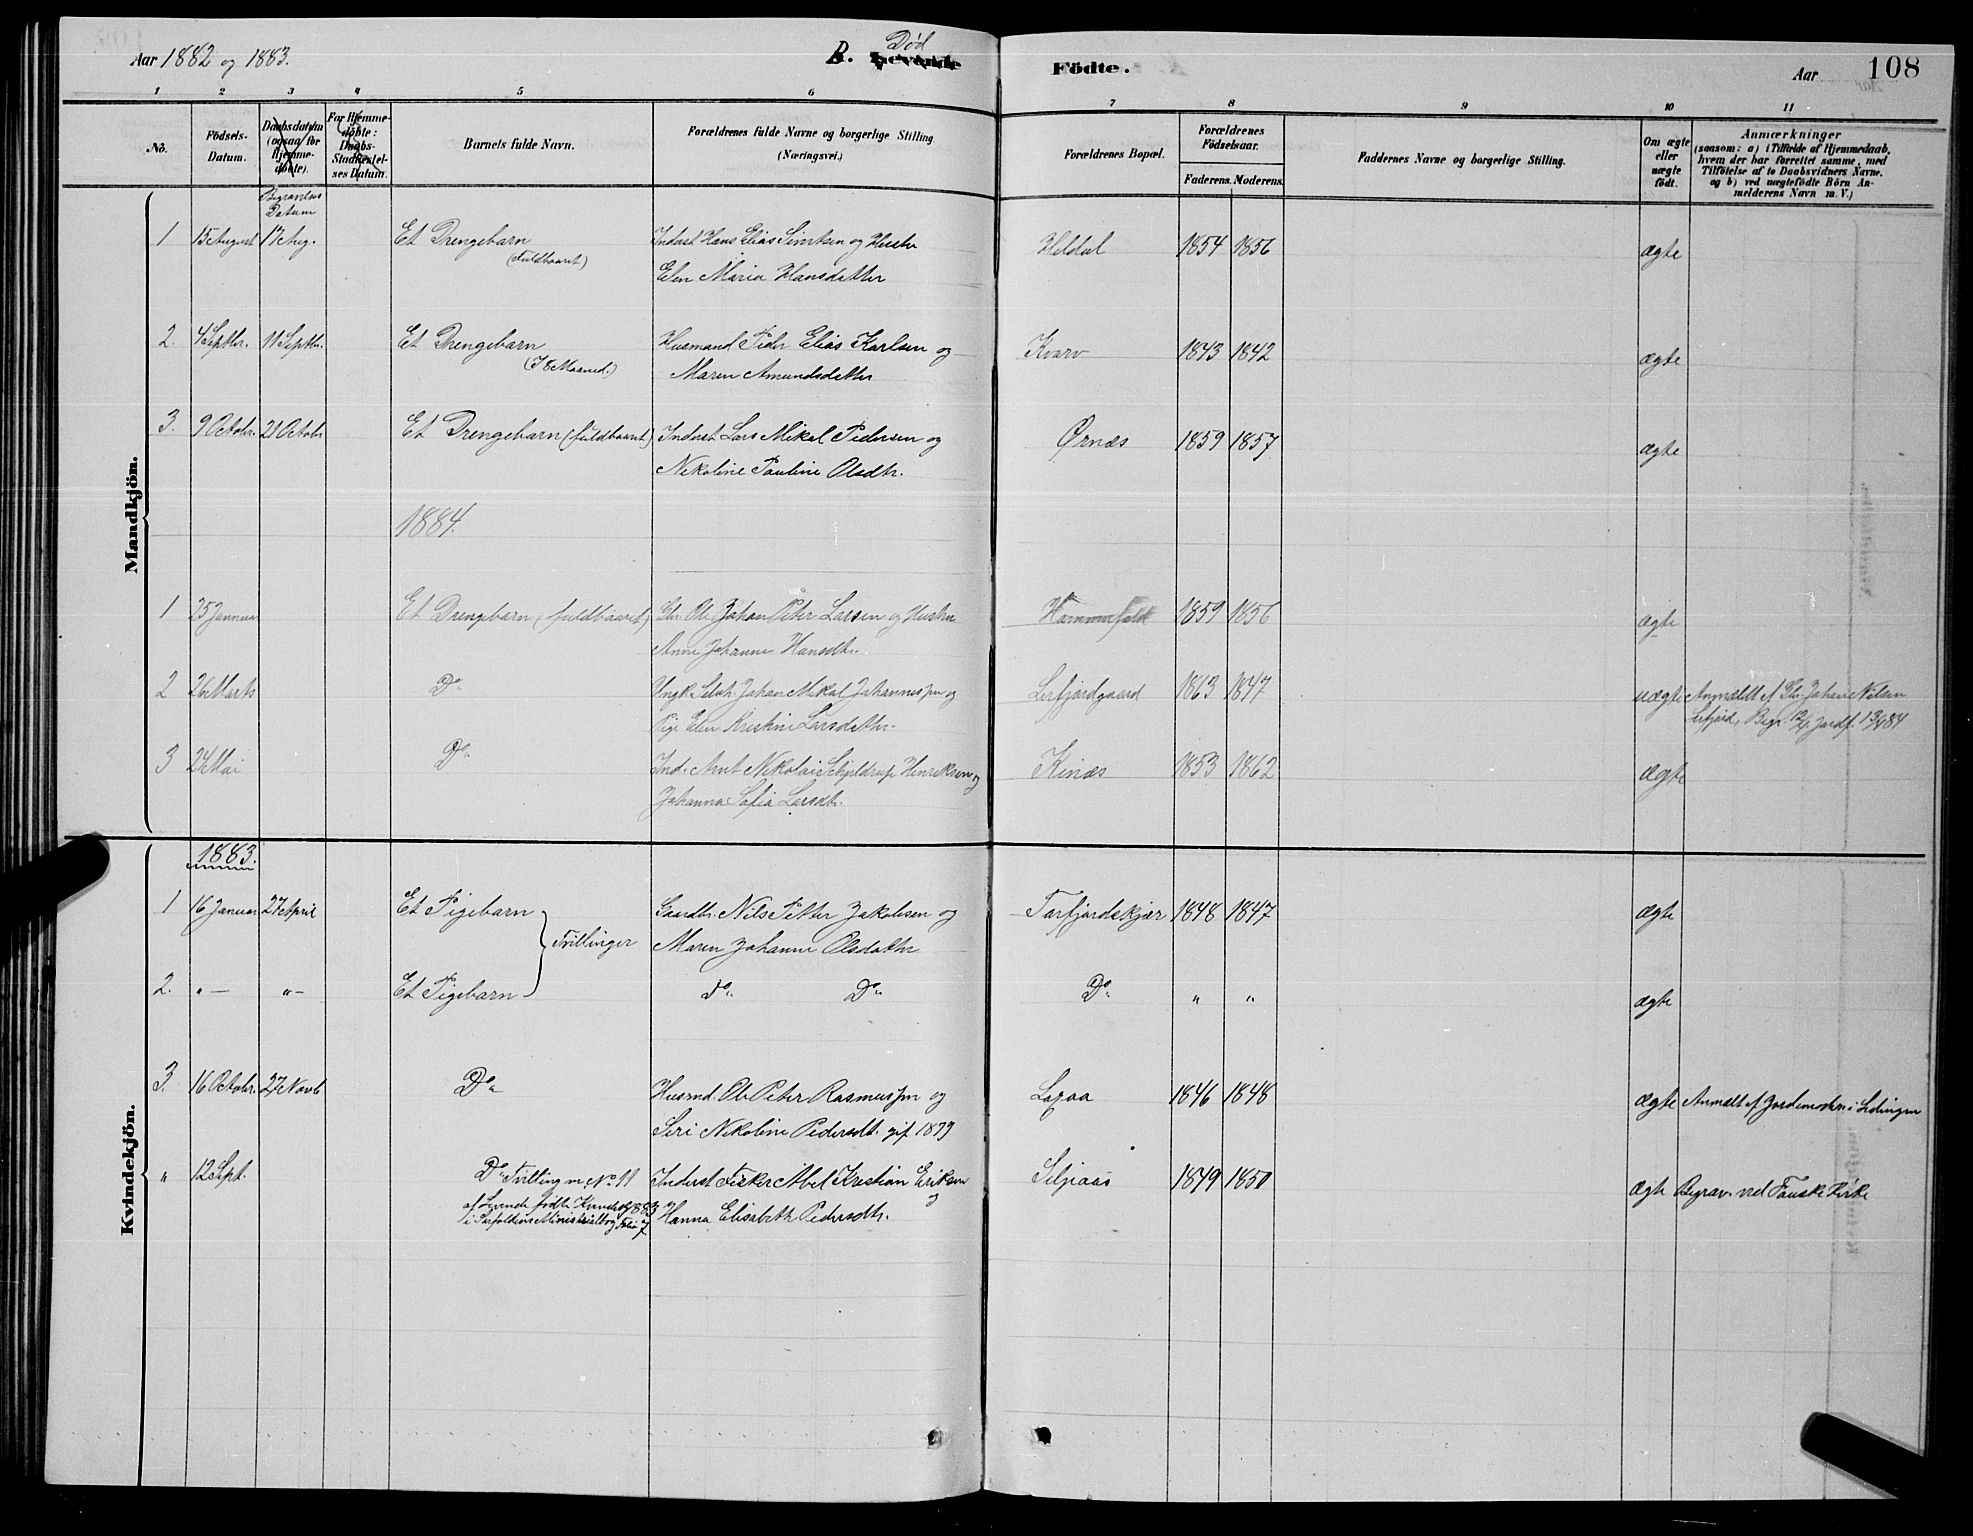 Aar 1882 og 1883.
B. Død
Levende Fødte.
Aar 108
1 2 3 4 5 6 7 8 9 10 11
No.
Fødsels-
Datum.
Daabsdatum
(ogsaa for
Hjemme-
døbte).
For Hjemme-
døbte:
Daabs-
Stadfæstel-
ses Datum.
Barnets fulde Navn.
Forældrenes fulde Navne og borgerlige Stilling
(Næringsvei.)
Forældrenes Bopæl.
Forældrenes
Fødselsaar.
Faderens. Moderens.
Faddernes Navne og borgerlige Stilling.
Om ægte
eller
uægte
født.
Anmærkninger
(saasom: a) i Tilfælde af Hjemmedaab,
hvem der har forrettet samme, med
Tilføielse af to Daabsvidners Navne.
og b) ved uægtefødte Børn An-
melderens Navn m. V.)
Begravelses
Datum
Mandkjön.
1 15 August 17 Aug. Et Drengebarn Inderst Hans Elias Simonsen og Hustru Heldal 1854 1856 ægte
(Fuldbaaret)
Elen Maria Hansdatter
2. 4 Septbr. 11 Septbr. Et Drengebarn Husmand Peder Elias Karlsen og Kvarv 1843 1842 ægte
(I 8 Maaned.)
Maren Amundsdatter
3. 9 Octobr. 21 Octobr Et Drengebarn (fuldbaaret) Inderst Lars Mikal Pedersen og Ørnæs 1859 1857 ægte
Nikoline Pauline Olsdtr.
1884.
1 25 Januar Et Drengebarn (fuldbaaret) Ole Johan Peter Larsen og Hustru Hammerfald 1859 1856 ægte
Anne Johanne Hansdtr.
2 26 Marts Do Ungk. Johan Mikal Johannessen og Lerfjordgaard 1863 1847 uægte Anmeldt af Johan Nilsen
Pige Elen Kristine Larsdatter. Lerfjord, Begr. Jordf.
3 24 Mai Do Ind. Arnt Nikolai Schjeldrup Henriksen og Kinæs 1853 1862 ægte
Johanna Sofia Larsdtr.
Kvindekjön.
1883.
1 16 Januar 27 April Et Pigebarn Gaardbr. Nils Petter Jakobsen og Torfjordskjær 1848 1847 ægte
Tvillinger
Maren Johanne Olsdatter
2. " — " — Et Pigebarn Do Do Do " " ægte
3. 16 Octobr. 27 Novb Do Husmd. Ole Peter Rasmussen og Laxaa 1846 1848 ægte Anmeldt af Jordemoderen i Lødingen
Siri Nikoline Pedersdt. gif 1879
" 12 Sept. Do Tvilling m. No 11 Inderst Fisker Abel Kristian Eriksen Siljeaas 1849 1850 ægte Begrav. ved Fauske Kirke
og
af Levende fødte Kvindekj 1883
Hanna Elisabeth Pedersdtr.